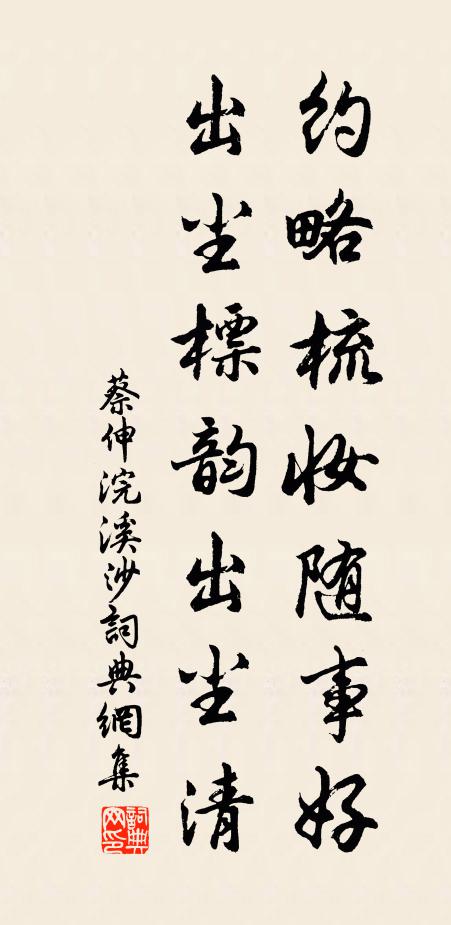 约略梳妆随事好
出尘標韵出尘清
蔡伸浣溪沙詞典網集
詞典网印